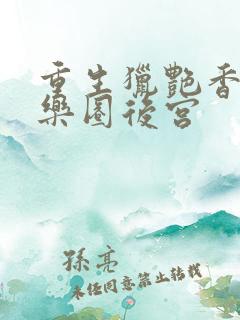 重生獵艷香
樂園後宮
孫亮
未经同意禁止转载